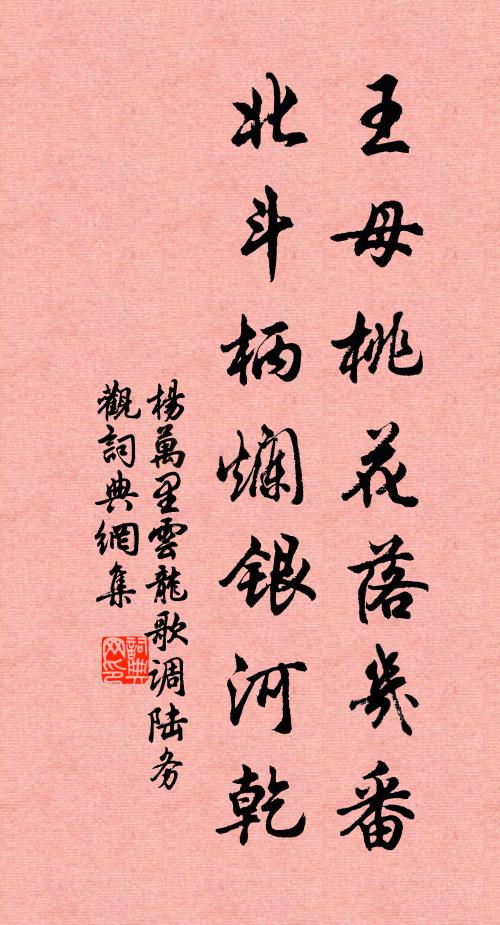 王母桃花落幾番
北斗柄爛銀河乾
楊萬里雲龍歌调陆务
觀詞典網集
詞典
网印